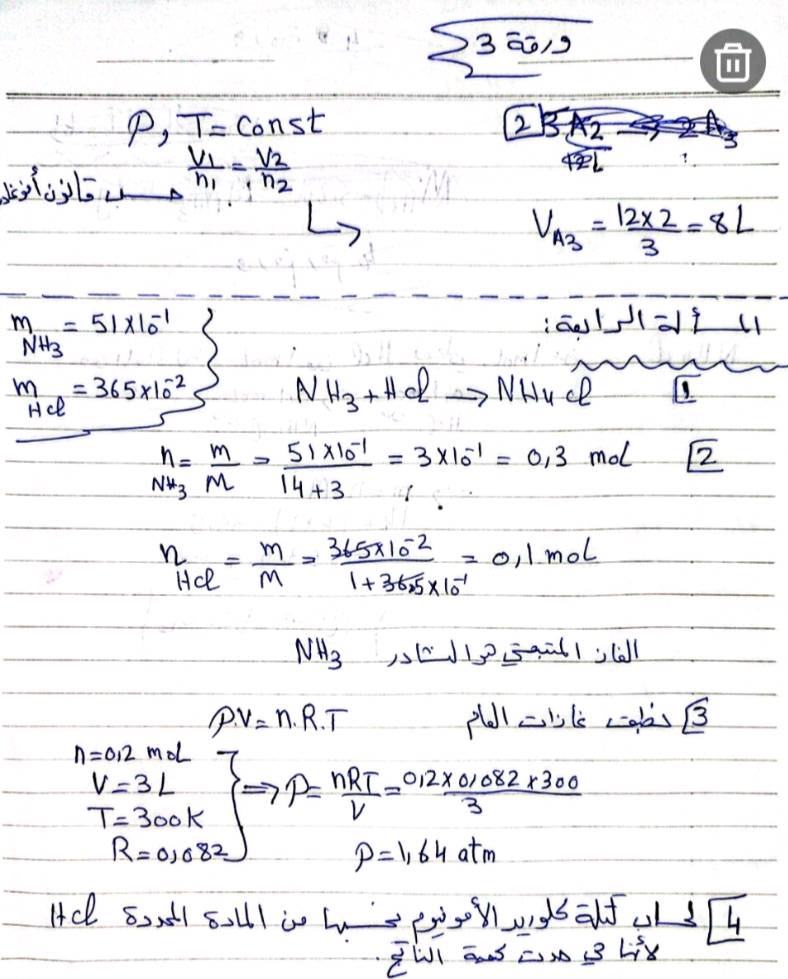 ورقة 3
P, T = const
V1/n1 = V2/n2
حسب قانون أفوغادرو
[2] 3A2 → 2A3
12L ?
V A3 = 12×2/3 = 8L
المسألة الرابعة:
m NH3 = 51×10^-1
m HCl = 365×10^-2
NH3 + HCl → NH4Cl [1]
n NH3 = m/M = 51×10^-1/14+3 = 3×10^-1 = 0,3 mol [2]
n HCl = m/M = 365×10^-2/1+36,5×10^-1 = 0,1 mol
الغاز المتبقي هو النشادر NH3
[3] نطبق غازات العام P.V = n.R.T
n = 0,2 mol
V = 3L
T = 300K
R = 0,082
⇒ P = nRT/V = 0,2×0,082×300/3
P = 1,64 atm
[4] لحساب كتلة كلوريد الأمونيوم نحسبها من المادة المحددة HCl
لأنها هي حددت كمية الناتج.